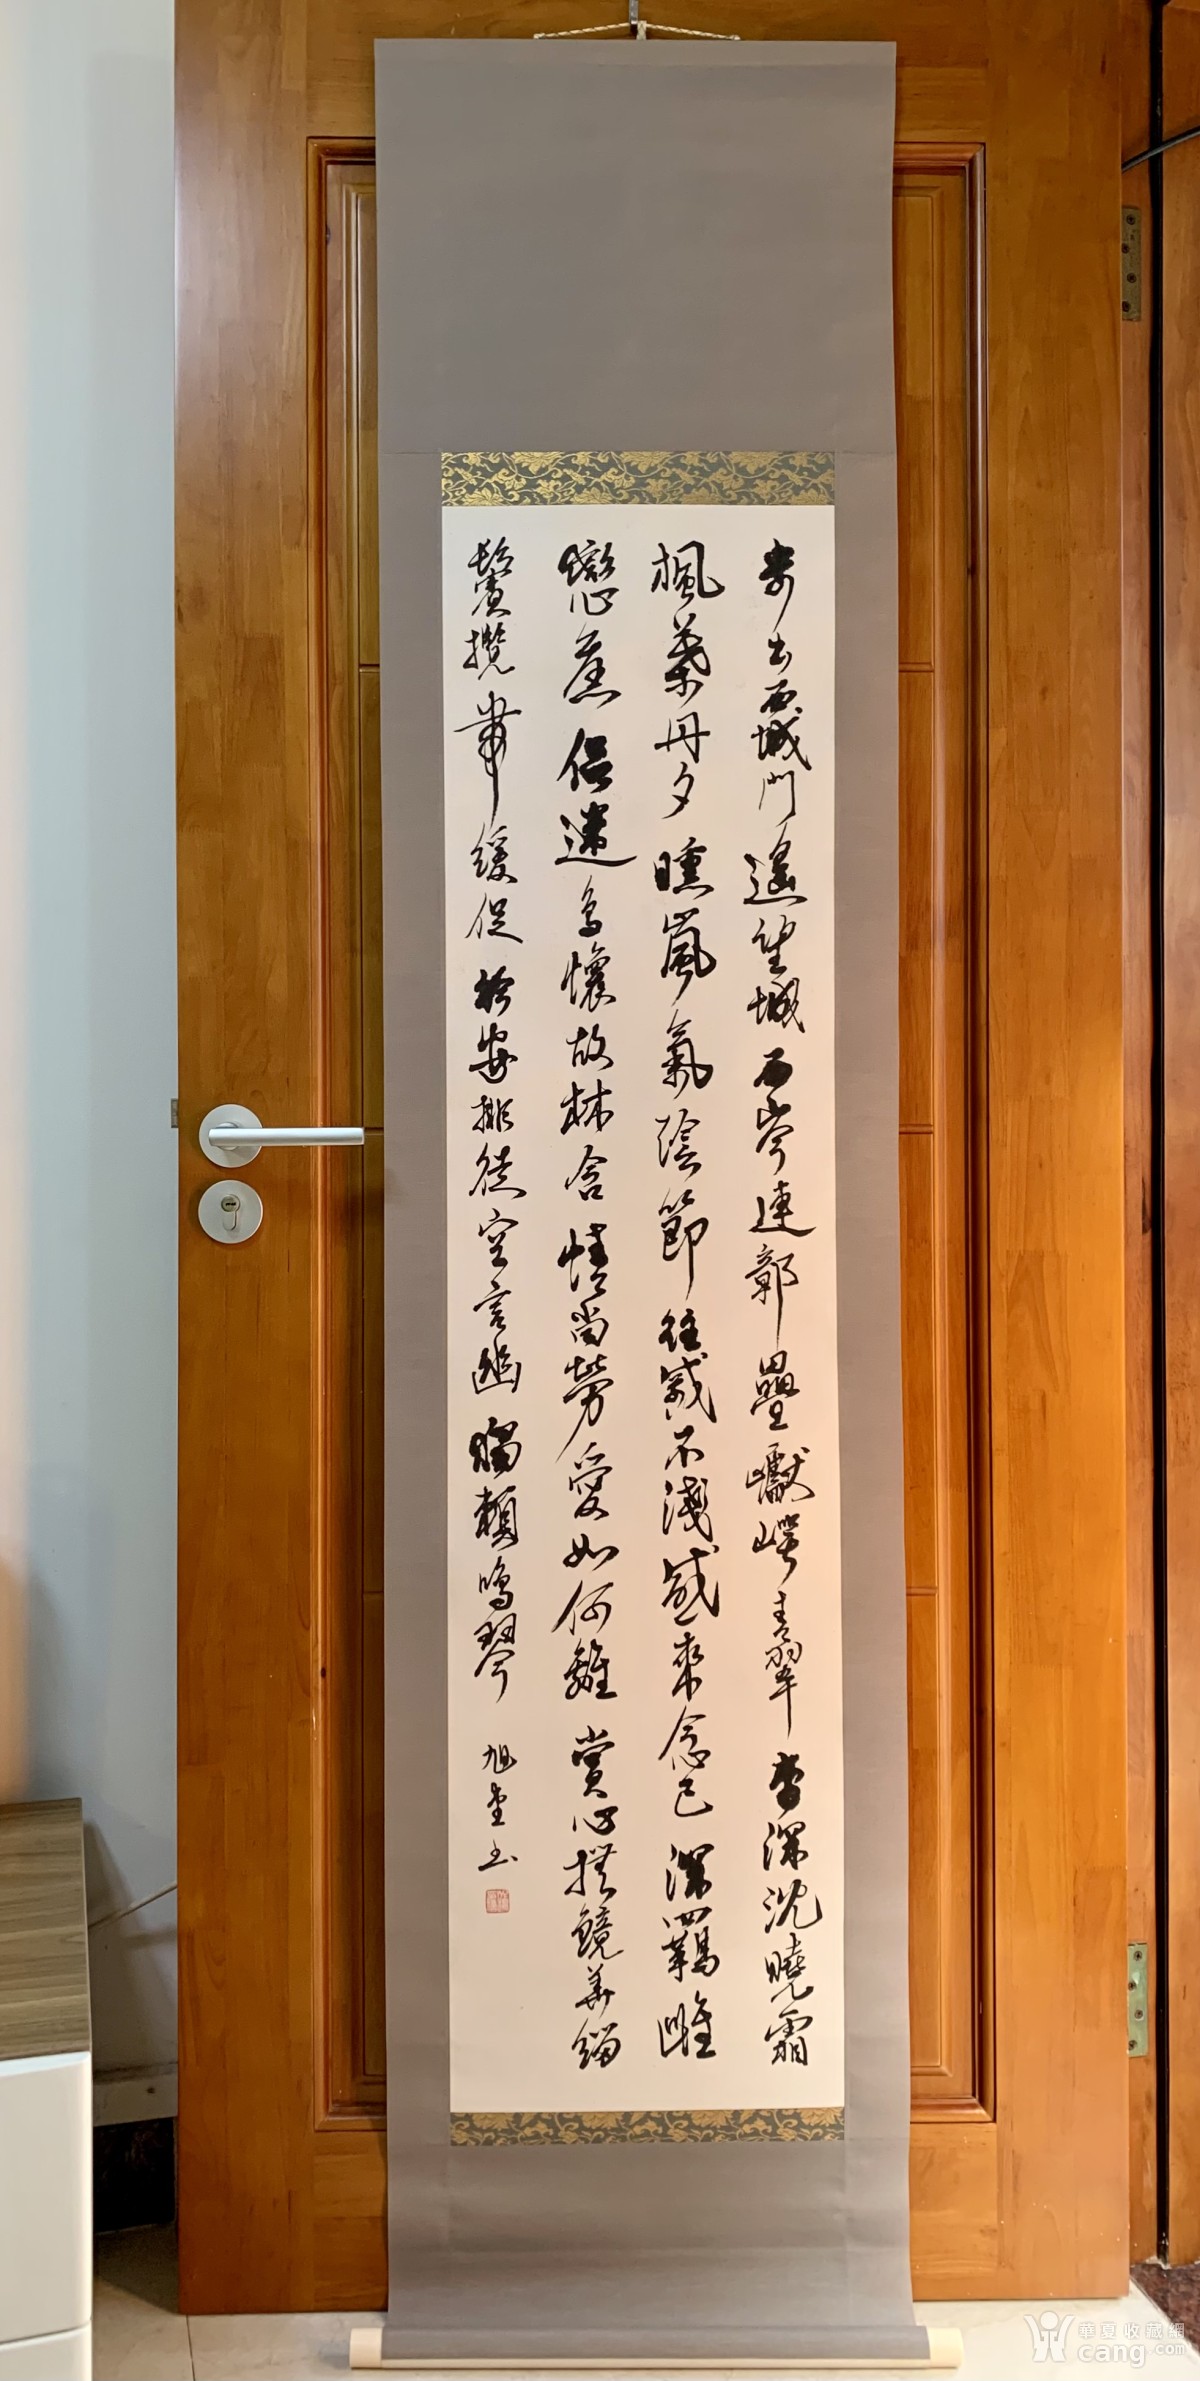 步出西城門遙望城西岑連鄣疊巘崿青翠杳深沈曉霜
楓葉丹夕曛嵐氣陰節往慼不淺感來念已深羈雌
戀舊侶迷鳥懷故林含情尚勞愛如何離賞心撫鏡華緇
鬢攬帶緩促衿安排徒空言幽獨賴鳴琴 旭堂書
華夏收藏網
cang.com